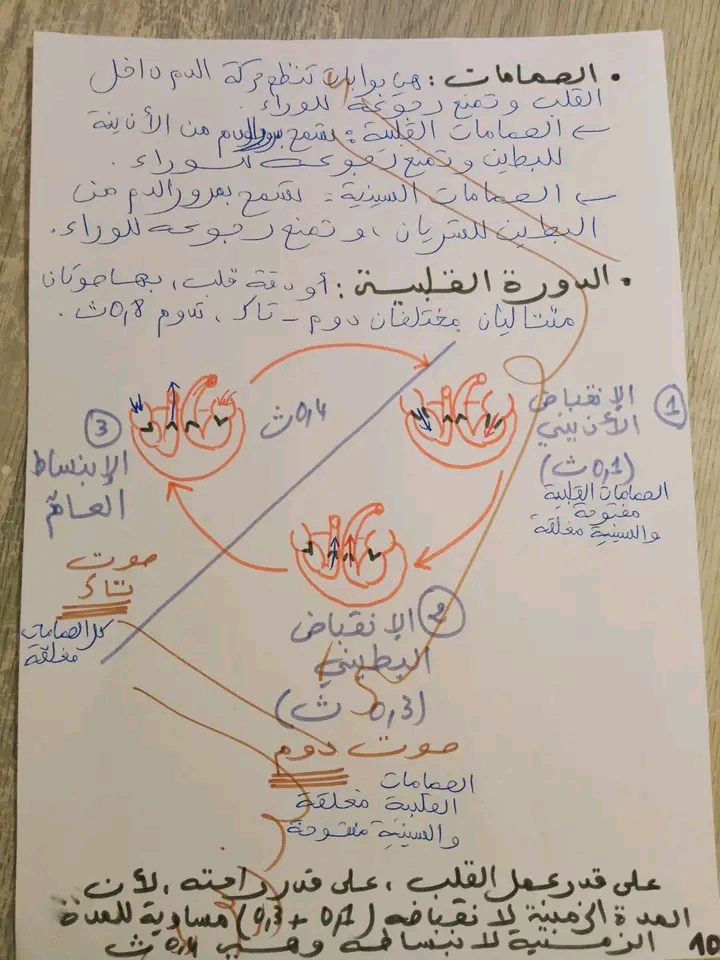 • الصمامات : هي بوابات تنظم حركة الدم داخل
القلب و تمنع رجوعه للوراء.
← الصمامات القلبية : تسمح بمرور الدم من الأذينة
للبطين و تمنع رجوعه للوراء .
← الصمامات السينية : تسمح بمرور الدم من
البطين للشريان ، و تمنع رجوعه للوراء.
• الدورة القلبية : أو دقة قلب ، بها صوتان
متتاليان مختلفان دوم - تاك ، تدوم 0,8 ث .
① الإنقباض
الأذيني
(0,1 ث)
الصمامات القلبية
مفتوحة
والسينية مغلقة
② الإنقباض
البطيني
(0,3 ث)
صوت دوم
الصمامات
القلبية مغلقة
والسينية مفتوحة
③
0,4 ث
الإنبساط
العام
صوت
تاك
كل الصمامات
مغلقة
على قدر عمل القلب ، على قدر راحته ، لأن
المدة الزمنية لانقباضه (0,1 + 0,3) مساوية للمدة
الزمنية لانبساطه وهي 0,4 ث
10